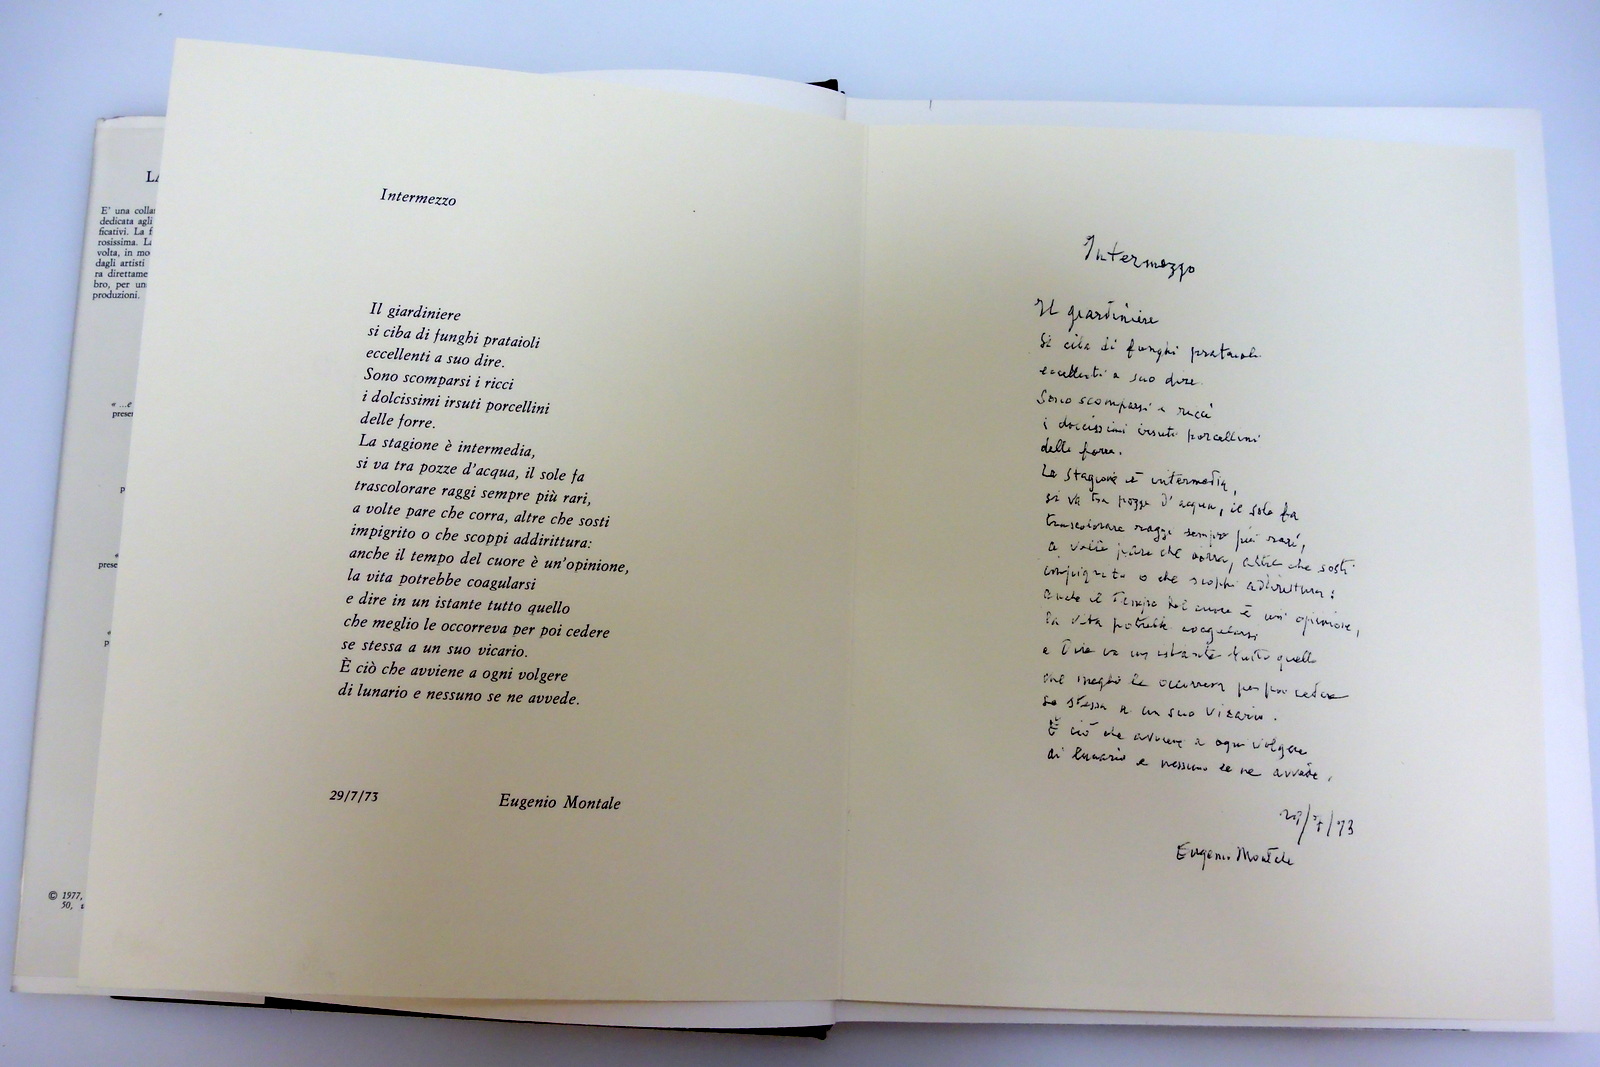 LA
E' una colla
dedicata agli
ficativi. La f
rosissima. La
volta, in mo
dagli artisti
ra direttame
bro, per un
produzioni.
« ...e
prese
p
«
prese
«
p
© 1977,
50,
Intermezzo
Il giardiniere
si ciba di funghi prataioli
eccellenti a suo dire.
Sono scomparsi i ricci
i dolcissimi irsuti porcellini
delle forre.
La stagione è intermedia,
si va tra pozze d'acqua, il sole fa
trascolorare raggi sempre più rari,
a volte pare che corra, altre che sosti
impigrito o che scoppi addirittura:
anche il tempo del cuore è un'opinione,
la vita potrebbe coagularsi
e dire in un istante tutto quello
che meglio le occorreva per poi cedere
se stessa a un suo vicario.
È ciò che avviene a ogni volgere
di lunario e nessuno se ne avvede.
29/7/73 Eugenio Montale
Intermezzo
Il giardiniere
si ciba di funghi prataioli
eccellenti a suo dire.
Sono scomparsi i ricci
i dolcissimi irsuti porcellini
delle forre.
La stagione è intermedia,
si va tra pozze d'acqua, il sole fa
trascolorare raggi sempre più rari,
a volte pare che corra, altre che sosti
impigrito o che scoppi addirittura:
anche il tempo del cuore è un'opinione,
la vita potrebbe coagularsi
e dire in un istante tutto quello
che meglio le occorreva per poi cedere
se stessa a un suo vicario.
È ciò che avviene a ogni volgere
di lunario e nessuno se ne avvede.
29/7/73
Eugenio Montale